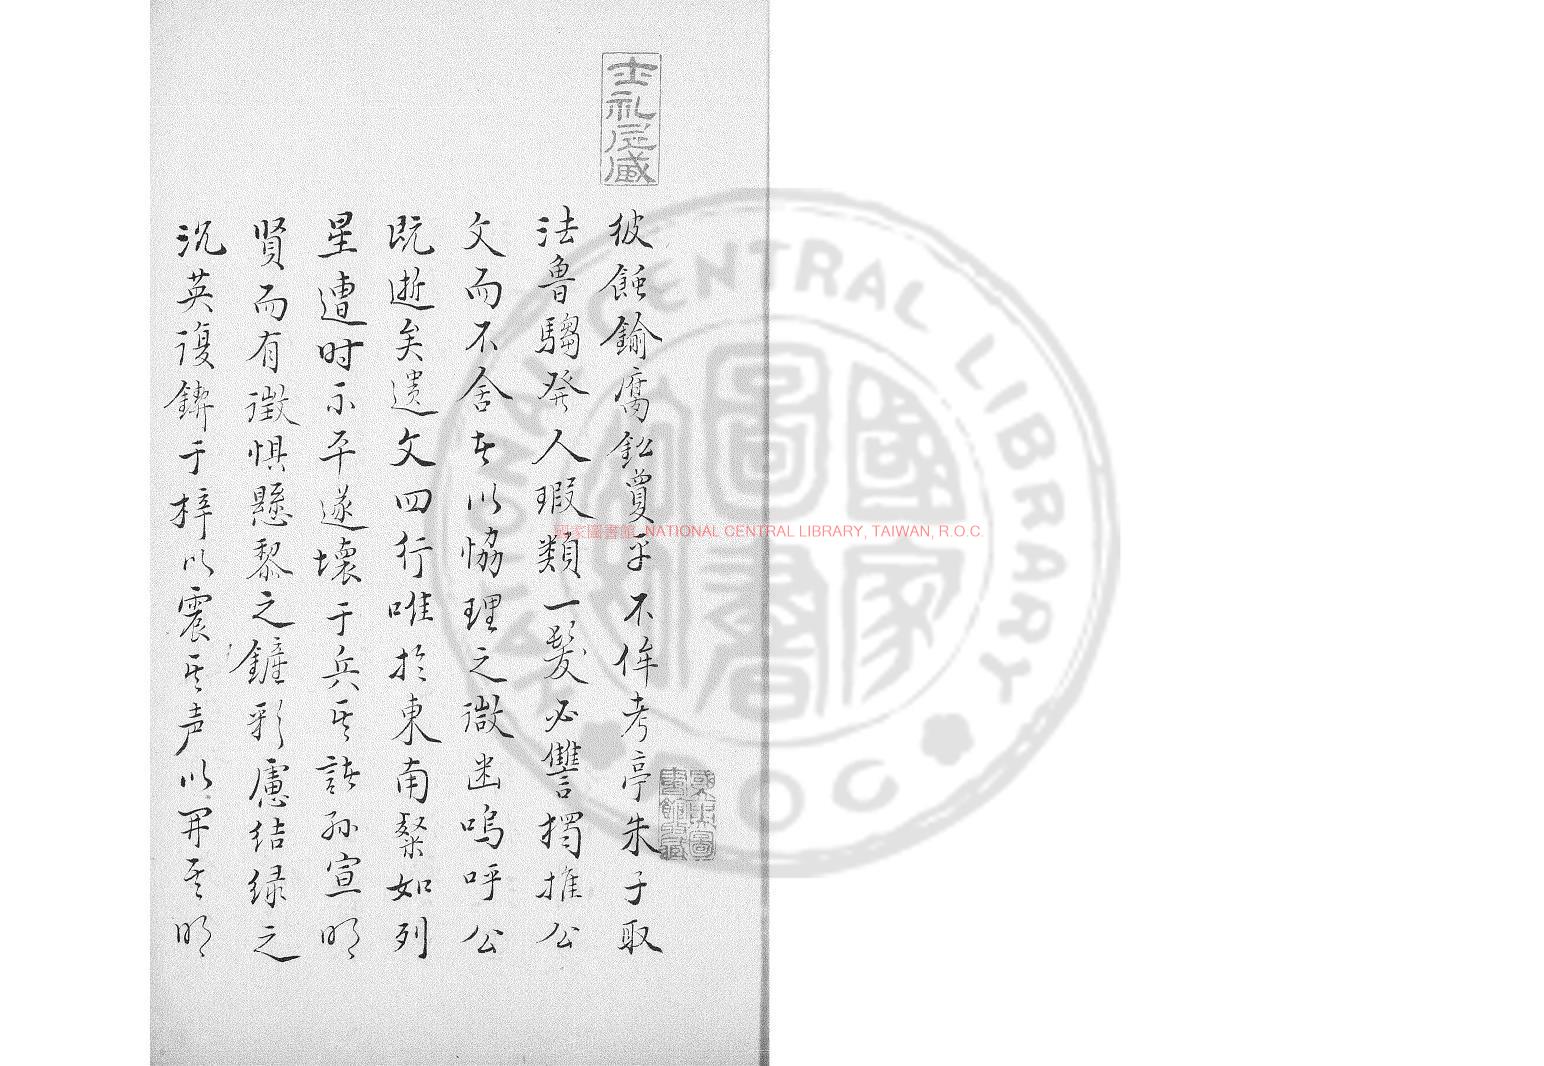 士礼居藏
彼蝕鍮腐鈆賈乎不侔考亭朱子取
法魯騶癹人瑕類一髮必讐獨推公
文而不舍者以恊理之微幽嗚呼公
既逝矣遗文四行唯於東南粲如列
星遭时不平遂壞于兵其諸孙宣明
賢而有徵惧懸黎之鏟彩慮结绿之
沉英復鋟于梓以震其声以开其明
國家圖書館藏
國家圖書館 NATIONAL CENTRAL LIBRARY, TAIWAN, R.O.C.
NATIONAL CENTRAL LIBRARY
ROC
國家圖書